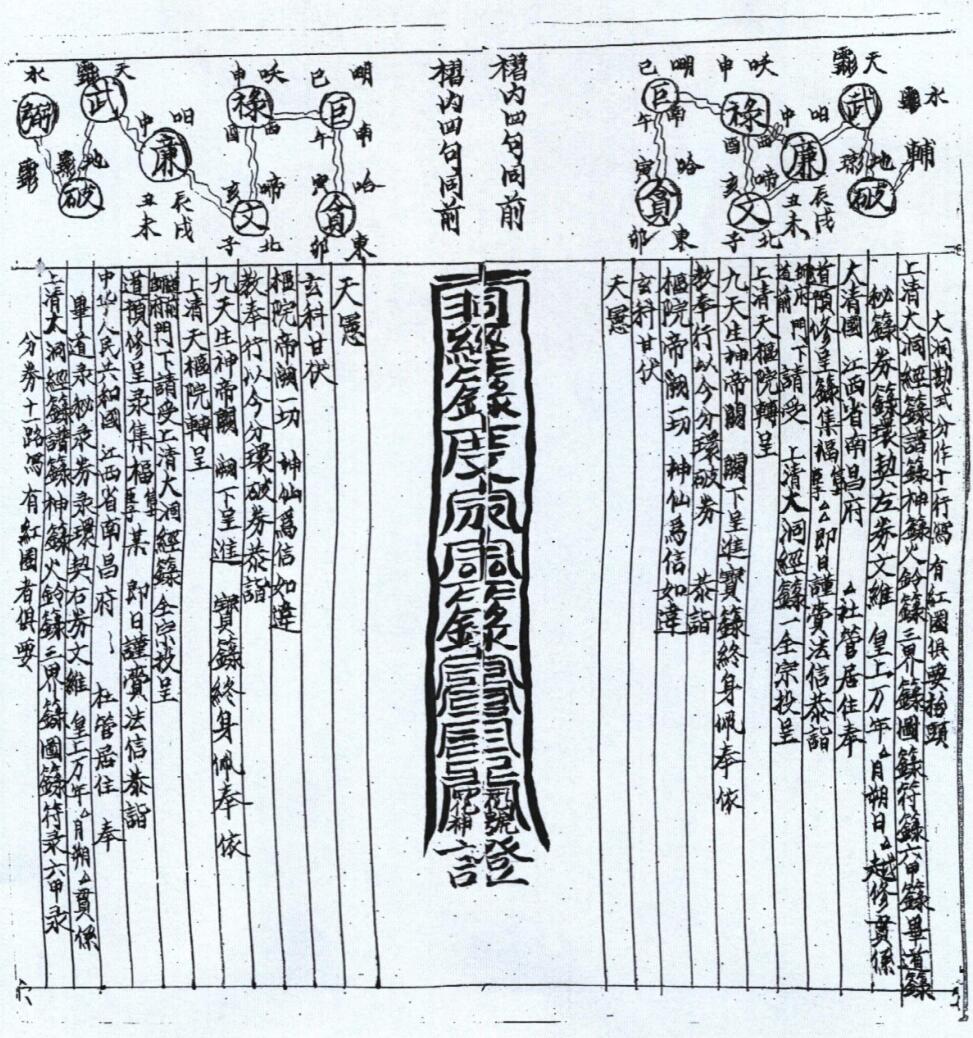 水
天
輔
武
地
破
廉
中
呬
辰戌
丑未
申
吠
祿
酉
酉
亥
啼
文
子
北
巳
明
巨
午
南
寅
哈
貪
卯
東
槢内四句同前
槢内四句同前
巳
明
巨
午
南
寅
哈
貪
卯
東
申
吠
祿
酉
酉
亥
啼
文
子
北
中
呬
廉
辰戌
丑未
天
武
地
破
水
弼
大洞勘式分作十行寫有紅圈俱要抬頭
上清大洞經籙諸籙神籙火鈴籙三界籙圖籙符籙六甲籙畢道籙
秘籙券籙環契左券文維 皇上万年厶月朔日厶越修貫係
大清國 江西省南昌府 厶社管居住奉
道預修呈籙集福 厶厶即日謹賫法信恭詣
道前 門下請受 上清大洞經籙一全宗投呈
上清天樞院轉呈
九天生神帝闕 闕下呈進 寳籙終身佩奉依
教奉行以今分環破券 恭詣
樞院帝闕一切 神仙爲信如違
玄科甘伏
天愿
證
天愿
玄科甘伏
樞院帝闕一切 神仙爲信如違
教奉行以今分環破券恭詣
九天生神帝闕 闕下呈進 寳籙終身佩奉依
上清天樞院轉呈
門下請受上清大洞經籙全宗投呈
道預修呈录集福 某 即日謹賫法信恭詣
中华人民共和國 江西省南昌府 社管居住 奉
畢道录秘录券录環契右券文維 皇上万年厶月朔厶貫係
上清大洞經籙諸籙神籙火鈴籙三界籙圖籙符录六甲录
分券十路寫 有紅圈者俱要